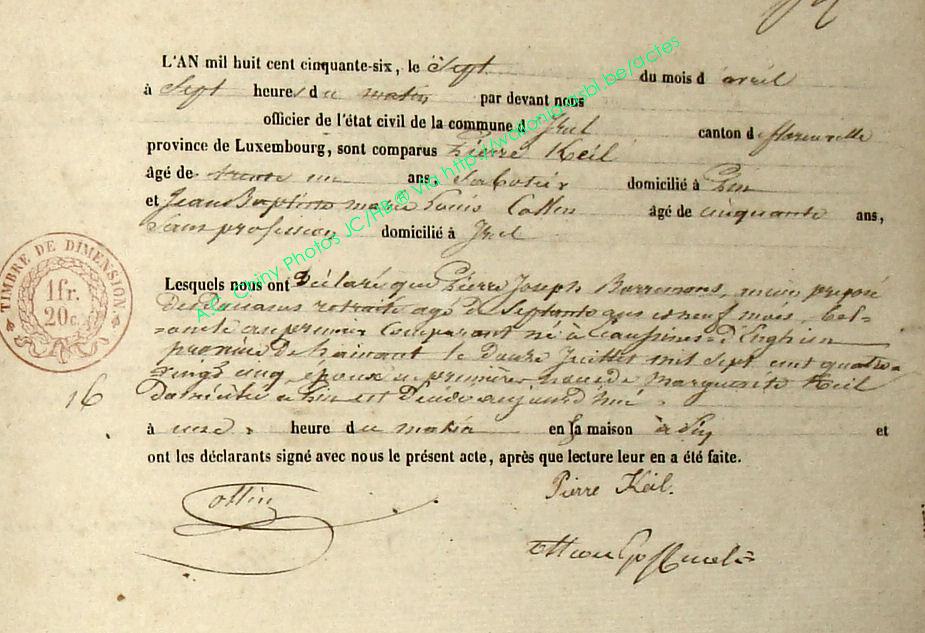 L'AN mil huit cent cinquante-six, le Sept du mois d'avril
à Sept heures du matin par devant nous
officier de l'état civil de la commune d'Izel canton de florenville
province de Luxembourg, sont comparus Pierre Keil
âgé de trente un ans, Sabotier domicilié à Pin
et Jean Baptiste marie Louis Collin âgé de cinquante ans,
Sans profession domicilié à Izel
Lesquels nous ont Déclaré que Pierre Joseph
Des Douanes retraité agé de Septante ans et neuf mois, bel-
au premier Comparant né à Ecaussines-d'Enghien
province de hainaut le douze Juillet mil Sept cent quatre-
vingt cinq, époux en premières noces de Marguerite Keil
Domiciliée à Pin est Décédé aujourd'hui
16
à une heure du matin en sa maison à Pin et
ont les déclarants signé avec nous le présent acte, après que lecture leur en a été faite.
Collin
Pierre Keil.
TIMBRE DE DIMENSION
1 fr.
20 c.
A.C. Chiny Photos JC/HB® via http://www.wallonica.asbl.be/actes